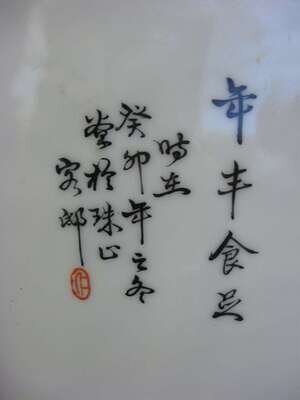 年丰食足
时在
癸卯年之冬
于珠山
客郎